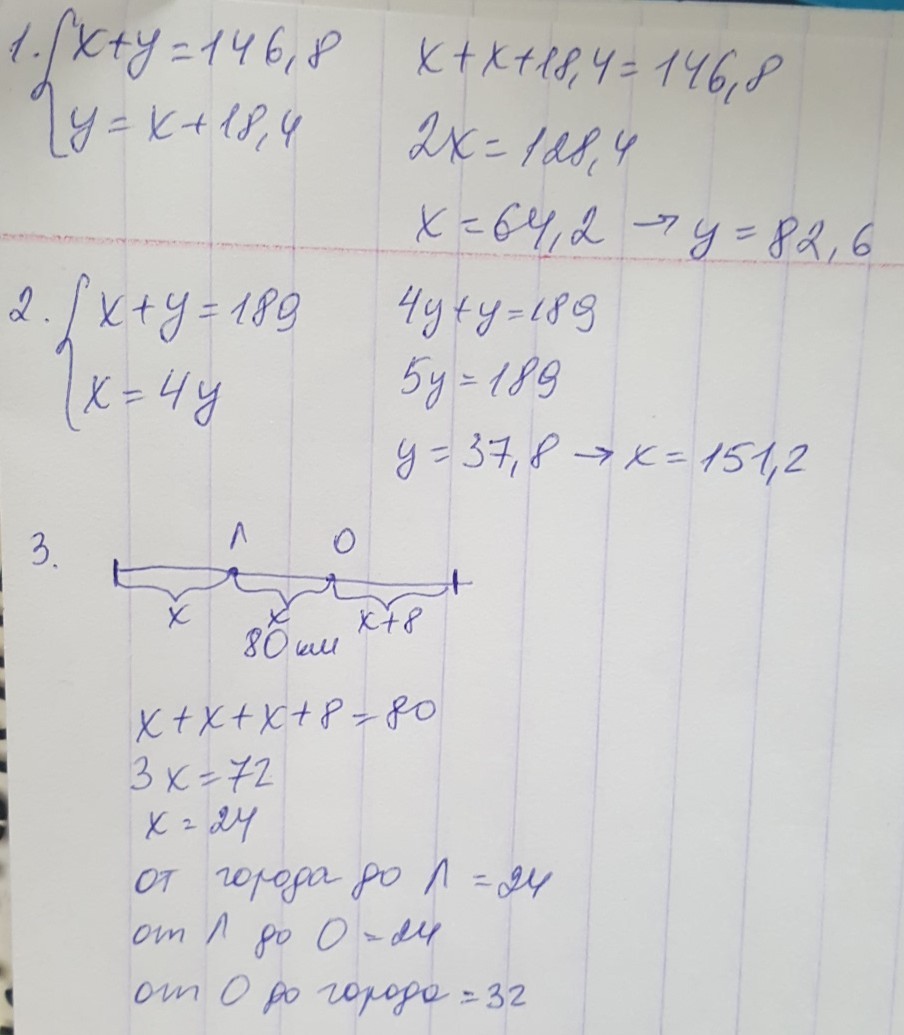 1. { x+y=146,8    x+x+18,4=146,8
y=x+18,4    2x=128,4
x=64,2 → y=82,6
2. { x+y=189    4y+y=189
x=4y    5y=189
y=37,8 → x=151,2
3. Л О
x x x+8
80 км
x+x+x+8=80
3x=72
x=24
от города до Л=24
от Л до О=24
от О до города=32